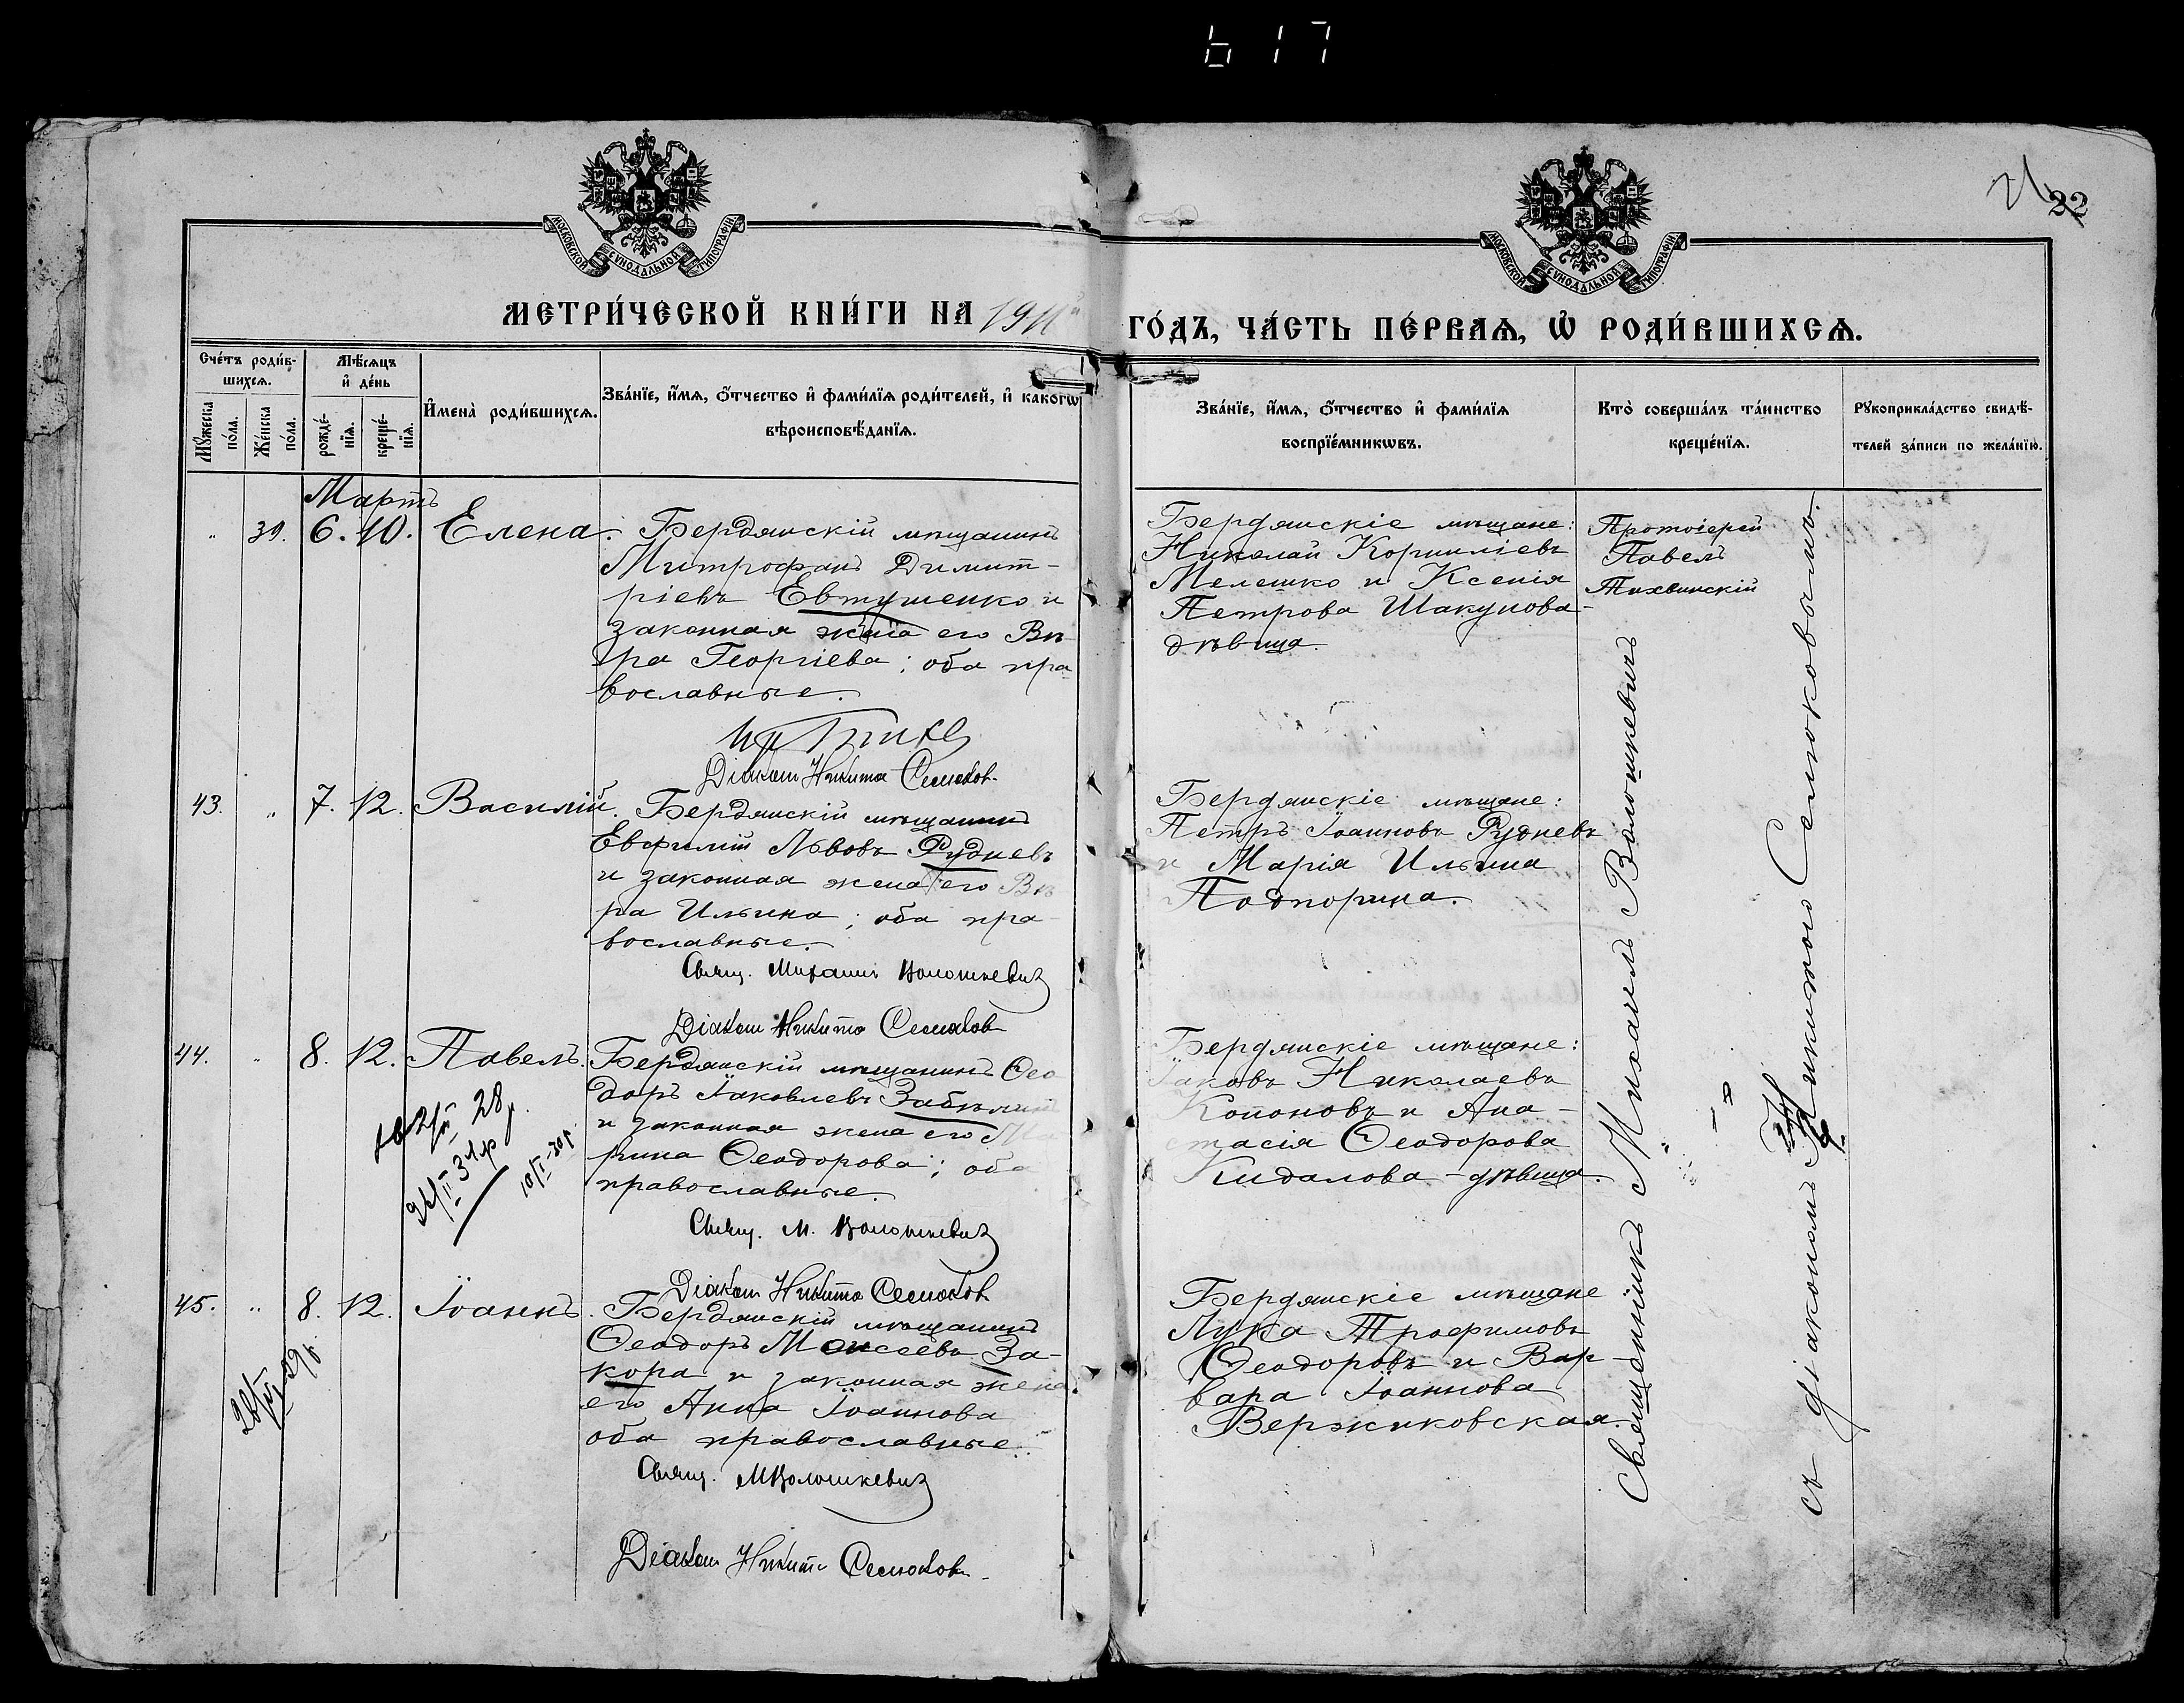 617
МОСКОВСКОЙ СѴНОДАЛЬНОЙ ТИПОГРАФІИ
МОСКОВСКОЙ СѴНОДАЛЬНОЙ ТИПОГРАФІИ
21 22
МЕТРИ́ЧЕСКОЙ КНИ́ГИ НА 1911й
ГО́ДЪ, ЧА́СТЬ ПЕ́РВАѦ, Ѡ҆ РОДИ́ВШИХСѦ.
Сче́тъ роди́в-
шихсѧ.
Мꙋ́жеска по́ла.
Же́нска по́ла.
Мѣ́сѧцъ
и҆ де́нь
рожде́-
нїѧ.
креще́-
нїѧ.
И҆мена̀ роди́вшихсѧ.
Зва́нїе, и҆́мѧ, ѻ҆́тчество и҆ фами́лїѧ роди́телей, и҆ како́гѡ
вѣроисповѣ́данїѧ.
Зва́нїе, и҆́мѧ, ѻ҆́тчество и҆ фами́лїѧ
воспрїе́мникѡвъ.
Кто̀ соверша́лъ та́инство
креще́нїѧ.
Рꙋкоприкла́дство свидѣ́-
телей за́писи по жела́нїю.
Мартъ
" 39. 6. 10. Елена. Бердянскій мѣщанинъ
Митрофанъ Димит-
ріевъ Евтушенко и
законная жена его Вѣ-
ра Георгіева; оба пра
вославные.
Діаконъ Никита Семоков
Бердянскіе мѣщане:
Николай Корниліевъ
Мелешко и Ксенія
Петрова Шакунова-
дѣвица.
Протоіерей
Павелъ
Тихвинскій
43. " 7. 12. Василій. Бердянскій мѣщанинъ
Евфимій Львовъ Рудневъ
и законная жена его Вѣ
ра Ильина; оба пра-
вославные.
Свящ. Михаилъ Волошкевичъ
Діаконъ Никита Семоков
Бердянскіе мѣщане:
Петръ Іоанновъ Рудневъ
и Марія Ильина
Подпорина.
44. " 8. 12. Павелъ. Бердянскій мѣщанинъ Ѳео
доръ Іаковлевъ Забѣлинъ
и законная жена его Ма
рина Ѳеодорова; оба
православные.
Свящ. М. Волошкевичъ
Діаконъ Никита Семоков
10/I-30г
Бердянскіе мѣщане:
Іаковъ Николаевъ
Кононовъ и Ана-
стасія Ѳеодорова
Кидалова - дѣвица.
45. " 8. 12. Іоаннъ. Бердянскій мѣщанинъ
Ѳеодоръ Моисеевъ За-
кора и законная жена
его Анна Іоаннова
оба православные.
Свящ. М Волошкевичъ
Діаконъ Никита Семоков
Бердянскіе мѣщане
Лука Трофимовъ
Ѳеодоровъ и Вар-
вара Іоаннова
Вержиковская.
Священникъ Михаилъ Волошкевичъ
съ діакономъ Никитою Семоковымъ.